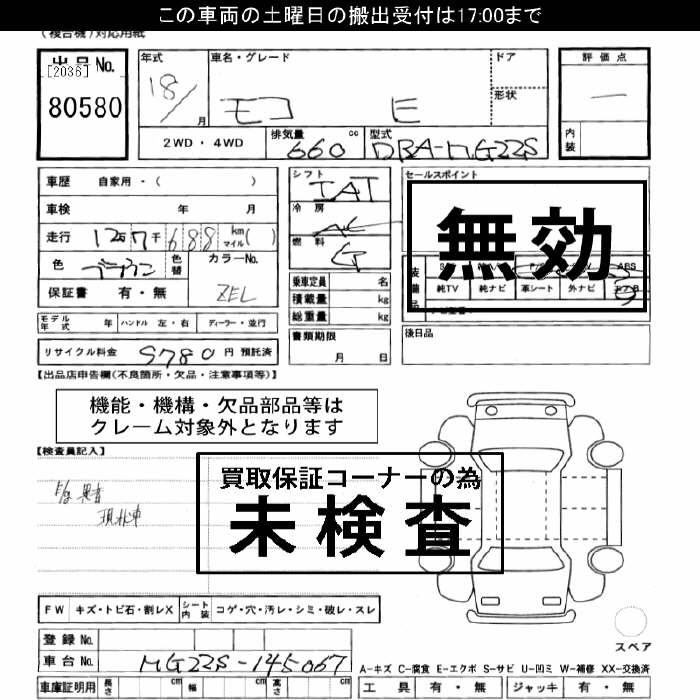 この車両の土曜日の搬出受付は17:00まで
(複合機)対応用紙
出品No.
[2036]
80580
年式
18/
月
車名・グレード
モコ E
ドア
形状
評価点
内装
2WD・4WD
排気量
660
cc
型式
DBA-MG22S
車歴 自家用・( )
車検 年 月
走行 12万7千688 km マイル( )
色 ブラウン 色替 カラーNo.
保証書 有・無 ZEL
シフト
IAT
冷房
AC
燃料
G
乗車定員 名
積載量 kg
総重量 kg
書類期限
月 日
セールスポイント
無効
装備品
ABS
純TV 純ナビ 革シート 外ナビ エアB
後日品
モデル年式 年 ハンドル 左・右 ディーラー・並行
リサイクル料金 9780 円 預託済
【出品店申告欄(不良箇所・欠品・注意事項等)】
機能・機構・欠品部品等は
クレーム対象外となります
【検査員記入】
現状車
買取保証コーナーの為
未検査
FW キズ・トビ石・割レX シート内装 コゲ・穴・汚レ・シミ・破レ・スレ
登録No.
車台No. MG22S-145067
スペア
A-キズ C-腐食 E-エクボ S-サビ U-凹ミ W-補修 XX-交換済
車庫証明用 長さ cm 幅 cm 高さ cm
工具 有・無 ジャッキ 有・無